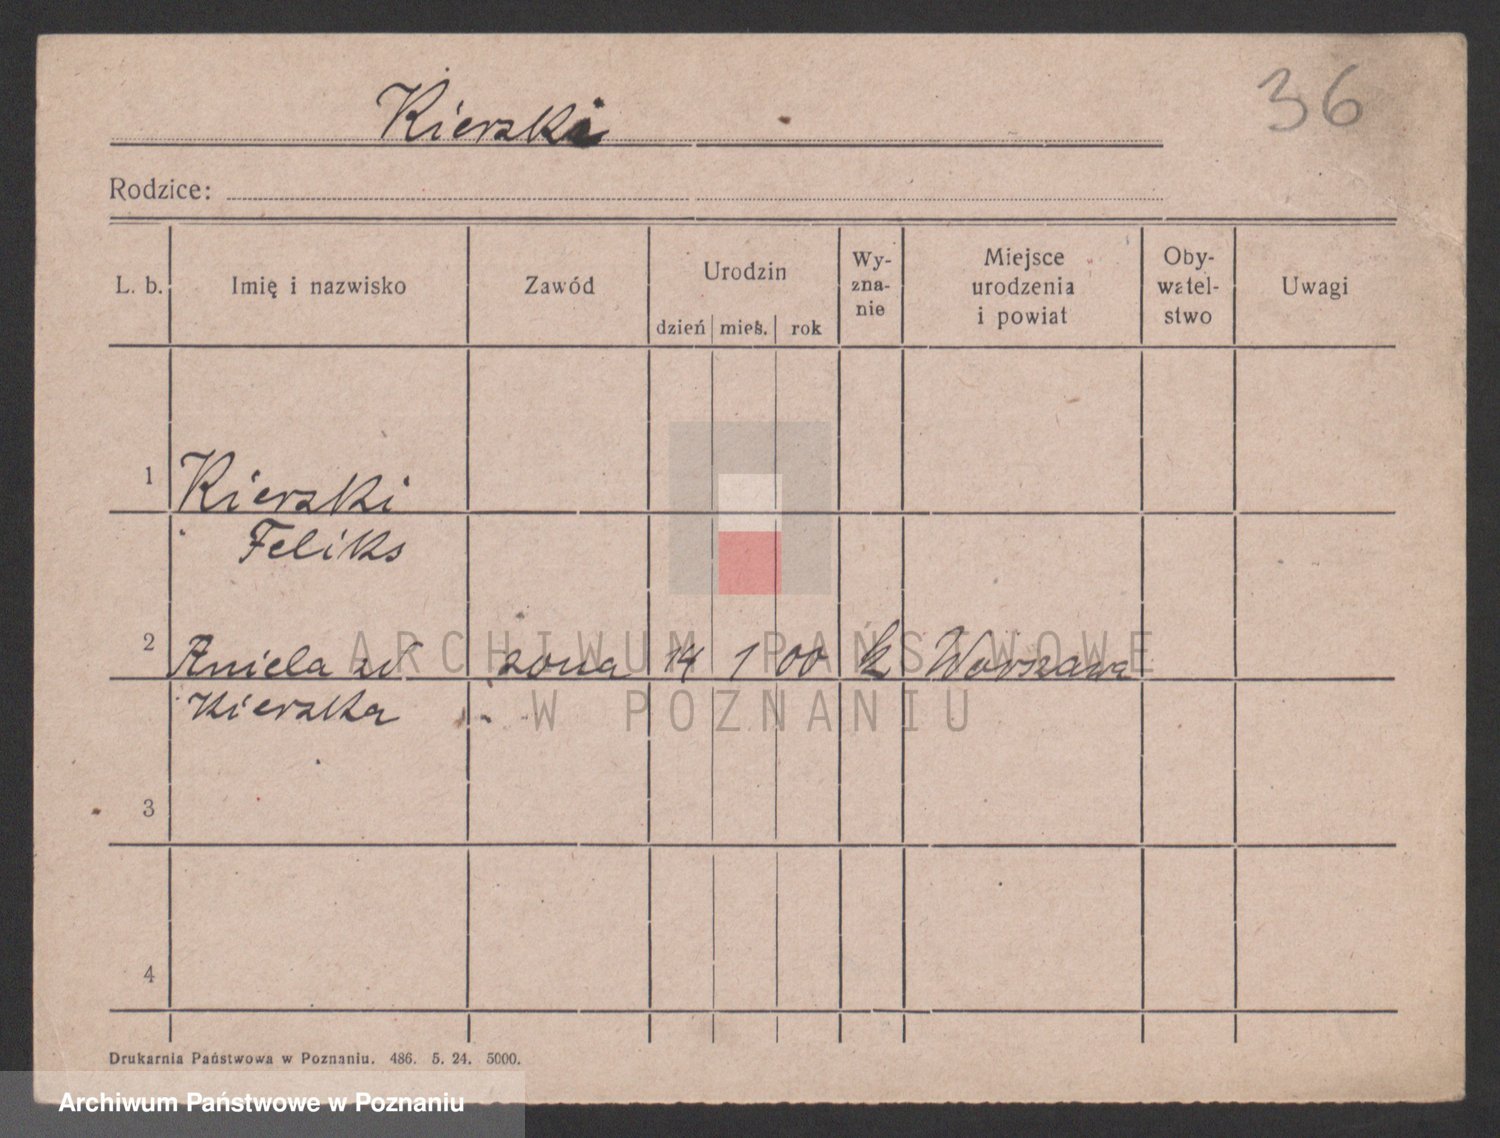 Kierski
36
Rodzice:
L. b. Imię i nazwisko Zawód Urodzin Wy- Miejsce Oby- Uwagi
zna- urodzenia watel-
dzień mieś. rok nie i powiat stwo
1 Kierski
Feliks
2 Aniela żona 14 1 00 k Warszawa
Kierska
3
4
Drukarnia Państwowa w Poznaniu. 486. 5. 24. 5000.
ARCHIWUM PAŃSTWOWE
W POZNANIU
Archiwum Państwowe w Poznaniu